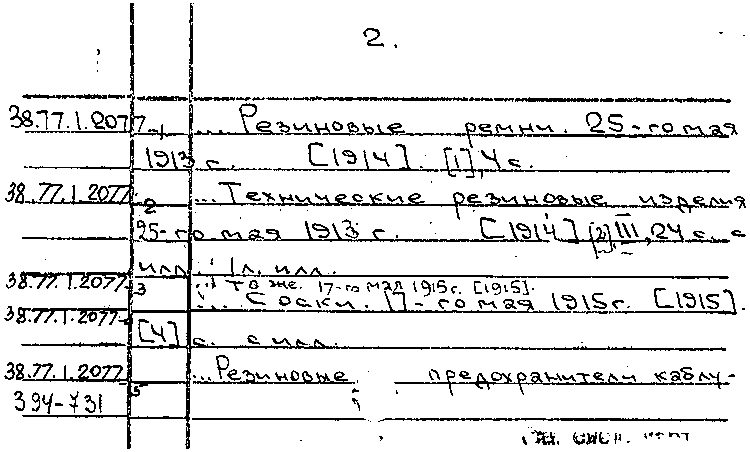 2.
38.77.1.2077-1 ...Резиновые ремни. 25-го мая
1913 г. [1914]. [1], 4 с.
38.77.1.2077-2 ...Технические резиновые изделия
25-го мая 1913 г. [1914] [2] III, 24 с. с
илл.; 1 л. илл.
38.77.1.2077-3 ... То же. 17-го мая 1915 г. [1915].
38.77.1.2077- ... Соски. 17-го мая 1915 г. [1915].
[4] с. с илл.
38.77.1.2077-5 ...Резиновые предохранители каблу-
394-731